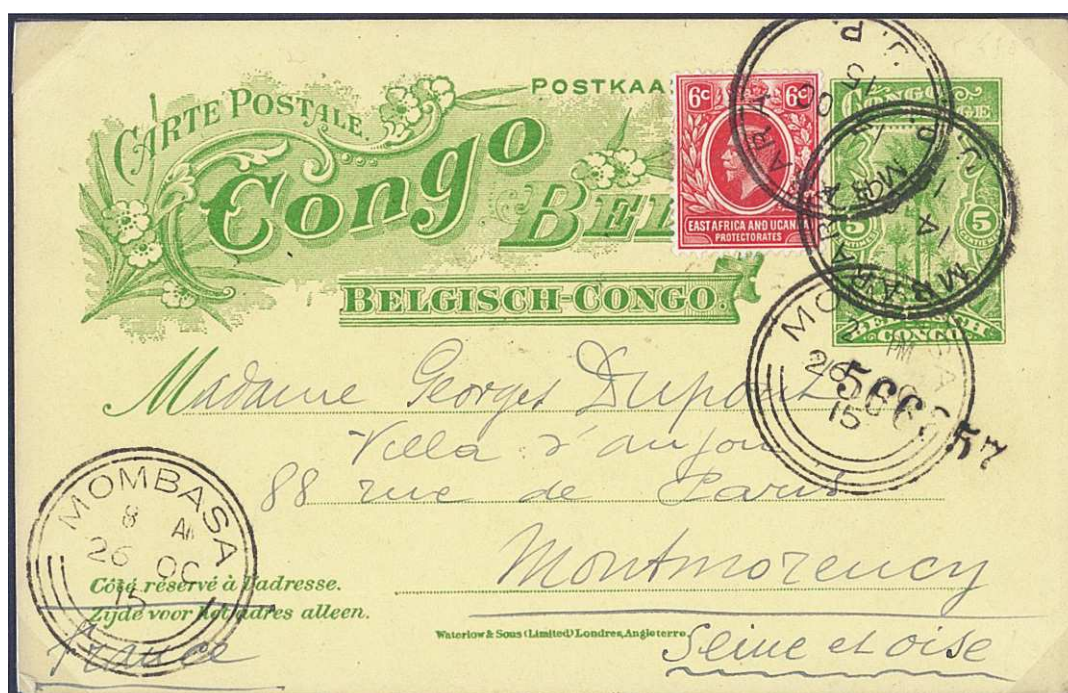 CARTE POSTALE.
POSTKAA
Congo
BEL
BELGISCH-CONGO.
6c 6c
EAST AFRICA AND UGANDA
PROTECTORATES
CONGO
5 5
CONGO
J. P.
MBARARA
MOMBASA
PM
26
15
566 57
Madame Georges Dupont
Villa d'anjou
88 rue de Paris
Montmorency
Seine et oise
MOMBASA
8 AM
26 OC
15
Côté réservé à l'adresse.
Zijde voor het adres alleen.
France
Waterlow & Sons (Limited) Londres, Angleterre